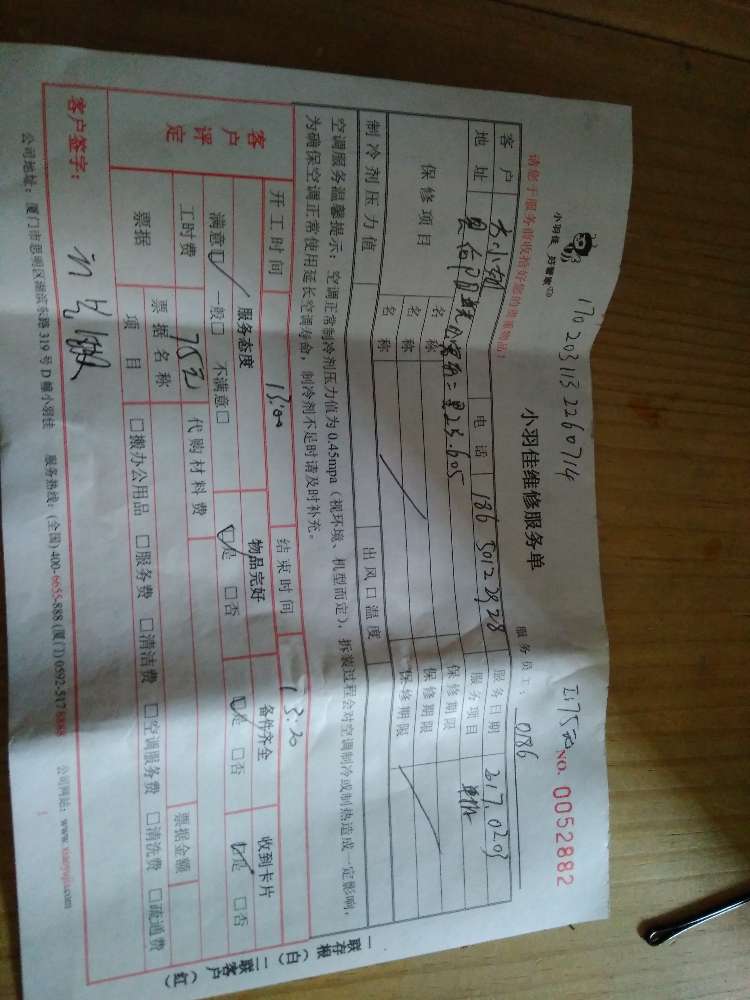 小羽佳 好管家
170203113 2260714
小羽佳维修服务单
NO. 0052882
请您于服务前收拾好您的贵重物品！
服务员工： 0186
客户 电话 服务日期 217.0203
地址 服务项目
保修项目 名称 保修期限
名称 保修期限
名称 保修期限
制冷剂压力值 出风口温度
空调服务温馨提示：空调正常制冷剂压力值为0.45mpa（视环境、机型而定），拆装过程会对空调制冷或制热造成一定影响，
为确保空调正常使用延长空调寿命，制冷剂不足时请及时补充。
开工时间 13:00 结束时间 13:20
客户评定 服务态度 物品完好 备件齐全 收到卡片
满意☑ 一般□ 不满意□ ☑是 □否 ☑是 □否 ☑是 □否
工时费 75元 代购材料费
票据 票据名称 票据金额
项目 □搬办公用品 □服务费 □清洁费 □空调服务费 □清洗费 □疏通费
客户签字：
公司地址：厦门市思明区湖滨东路319号D幢小羽佳 服务热线：(全国) 400-6655-888 (厦门) 0592-517 8888 公司网站：www.xiaoyujia.com
一联存根（白）二联客户（红）